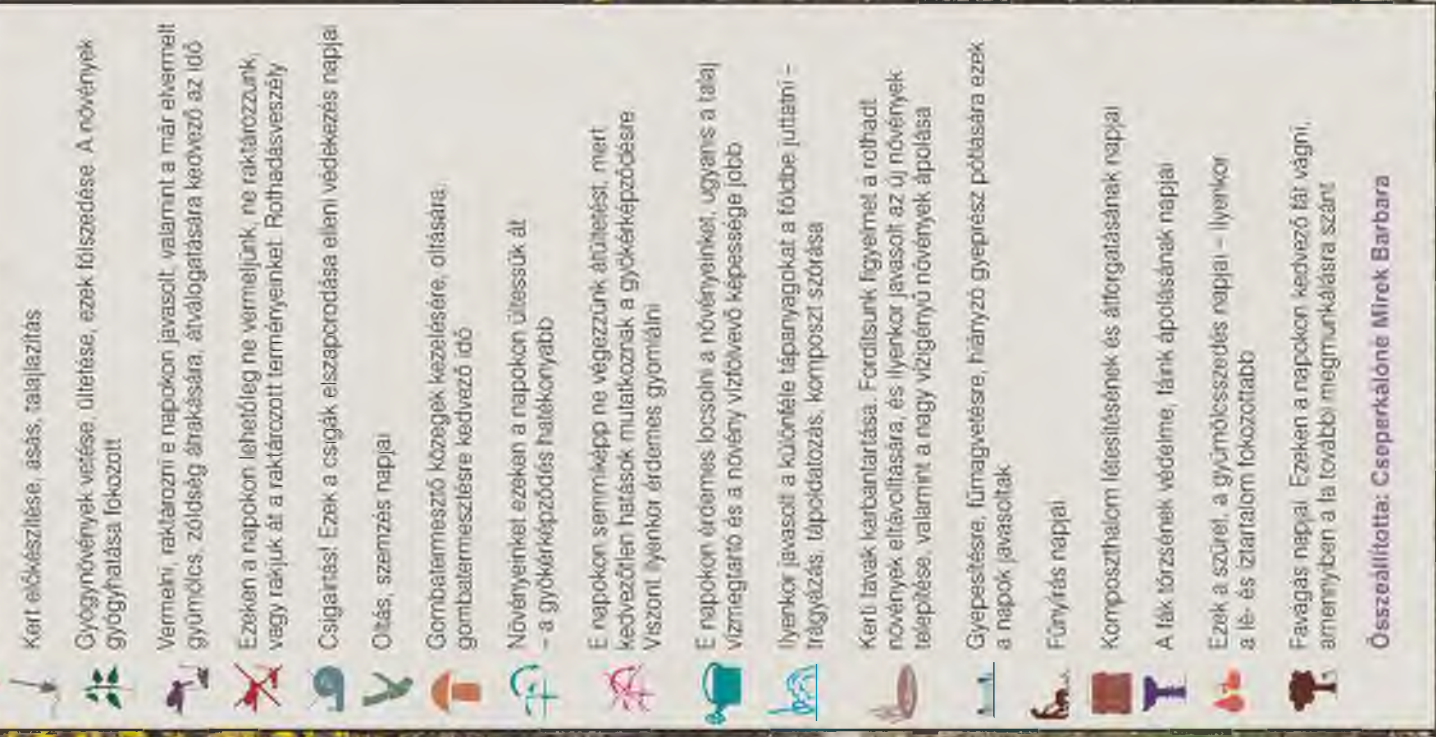 Kert előkészítése, ásás, talajlazítás
Gyógynövények vetése, ültetése, ezek fölszedése. A növények
gyógyhatása fokozott
Vermelni, raktározni e napokon javasolt, valamint a már elvermelt
gyümölcs, zöldség átrakására, átválogatására kedvező az idő
Ezeken a napokon lehetőleg ne vermeljünk, ne raktározzunk,
vagy rakjuk át a raktározott terményeinket. Rothadásveszély
Csigairtás! Ezek a csigák elszaporodása elleni védekezés napjai
Oltás, szemzés napjai
Gombatermesztő közegek kezelésére, oltására,
gombatermesztésre kedvező idő
Növényeinket ezeken a napokon ültessük át
– a gyökérképződés hatékonyabb
E napokon semmiképp ne végezzünk átültetést, mert
kedvezőtlen hatások mutatkoznak a gyökérképződésre.
Viszont ilyenkor érdemes gyomlálni
E napokon érdemes locsolni a növényeinket, ugyanis a talaj
vízmegtartó és a növény vízfölvevő képessége jobb
Ilyenkor javasolt a különféle tápanyagokat a földbe juttatni –
trágyázás, tápoldatozás, komposzt szórása
Kerti tavak karbantartása. Fordítsunk figyelmet a rothadt
növények eltávolítására, és ilyenkor javasolt az új növények
telepítése, valamint a nagy vízigényű növények ápolása
Gyepesítésre, fűmagvetésre, hiányzó gyeprész pótlására ezek
a napok javasoltak
Fűnyírás napjai
Komposzthalom létesítésének és átforgatásának napjai
A fák törzsének védelme, fáink ápolásának napjai
Ezek a szüret, a gyümölcsszedés napjai – ilyenkor
a lé- és íztartalom fokozottabb
Favágás napjai. Ezeken a napokon kedvező fát vágni,
amennyiben a fa további megmunkálásra szánt
Összeállította: Cseperkálóné Mirek Barbara